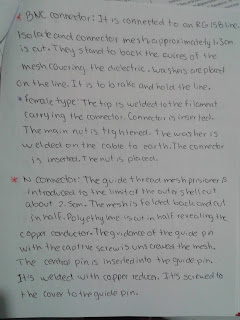 * BNC connector: It is connected to an RG 158 line.
Isolate and connector mesh approximately 1.5cm
is cut. They stand to back the wires of the
mesh covering the dielectric. washers are placed
on the line. It is to brake and hold the line.
* female type: The tip is welded to the filament
carrying the connector. Connector is inserted.
The main nut is tightened. The washer is
welded on the cable to earth. The connector
is inserted. The nut is placed.
* N connector: The guide thread mesh prisoner is
introduced to the limit of the outer shell cut
about 2.5cm. The mesh is folded back and cut
in half. Polyethylene is cut in half revealing the
copper conductor. The guidance of the guide pin
with the captive screw is unscrewed the mesh.
The central pin is inserted into the guide pin.
It's welded with copper reducer. It's screwed to
the cover to the guide pin.